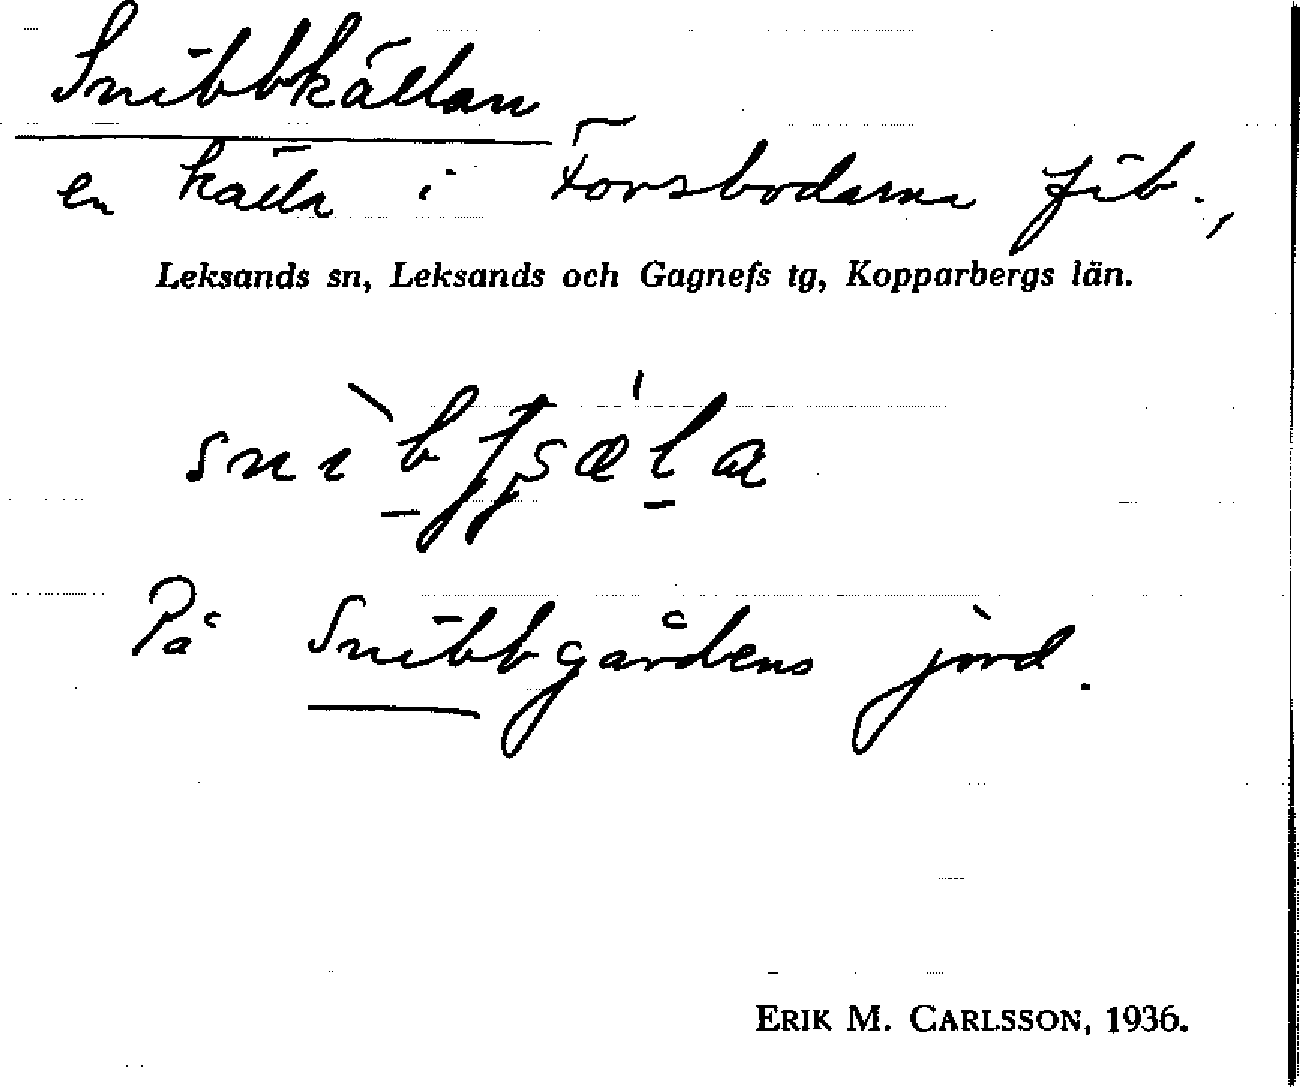 Snibbkällan
en källa i Forsbodarna fäb.,
Leksands sn, Leksands och Gagnefs tg, Kopparbergs län.
På Snibbgårdens jord.
ERIK M. CARLSSON, 1936.